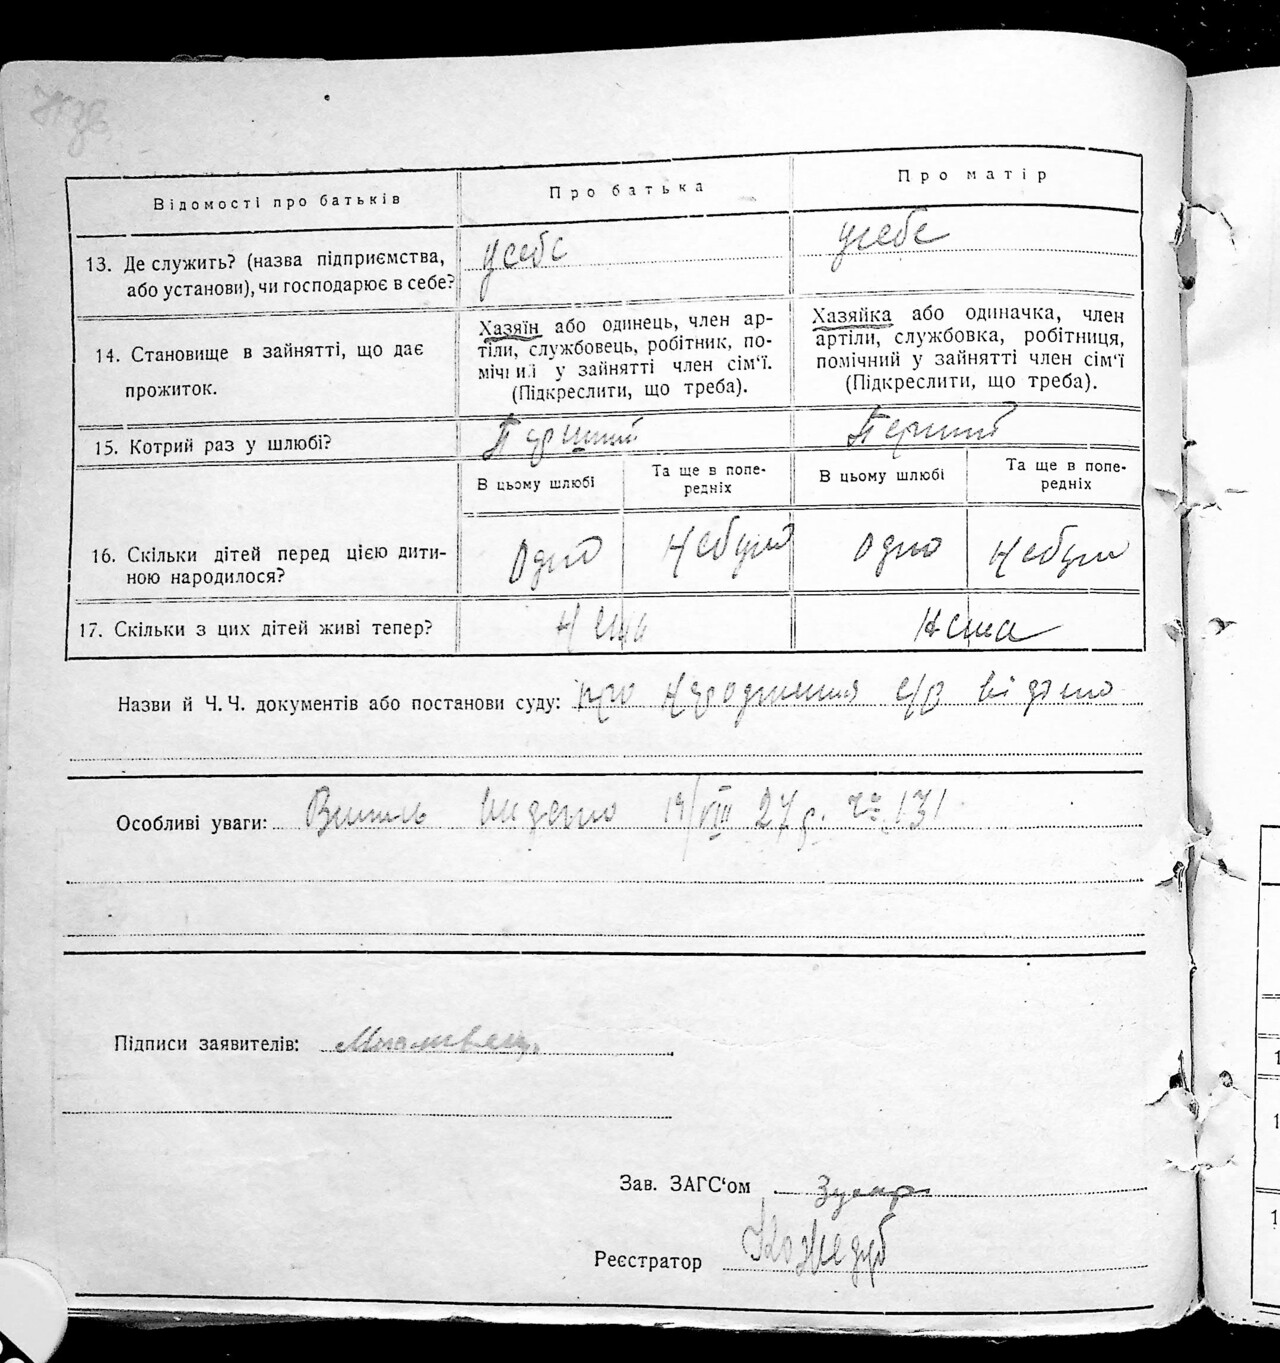 Відомості про батьків
Про батька
Про матір
13. Де служить? (назва підприємства,
або установи), чи господарює в себе?
усебе
усебе
14. Становище в зайнятті, що дає
прожиток.
Хазяїн або одинець, член ар-
тіли, службовець, робітник, по-
мічний у зайнятті член сім'ї.
(Підкреслити, що треба).
Хазяйка або одиначка, член
артіли, службовка, робітниця,
помічний у зайнятті член сім'ї
(Підкреслити, що треба).
15. Котрий раз у шлюбі?
Перший
Перший
В цьому шлюбі
Та ще в попе-
редніх
В цьому шлюбі
Та ще в попе-
редніх
16. Скільки дітей перед цією дити-
ною народилося?
Одно
Небуло
Одно
Небуло
17. Скільки з цих дітей живі тепер?
Нема
Нема
Назви й Ч. Ч. документів або постанови суду: про народження
Особливі уваги: видано 19/VIII 27 р. № 131
Підписи заявителів:
Зав. ЗАГС'ом
Реєстратор Кожедуб